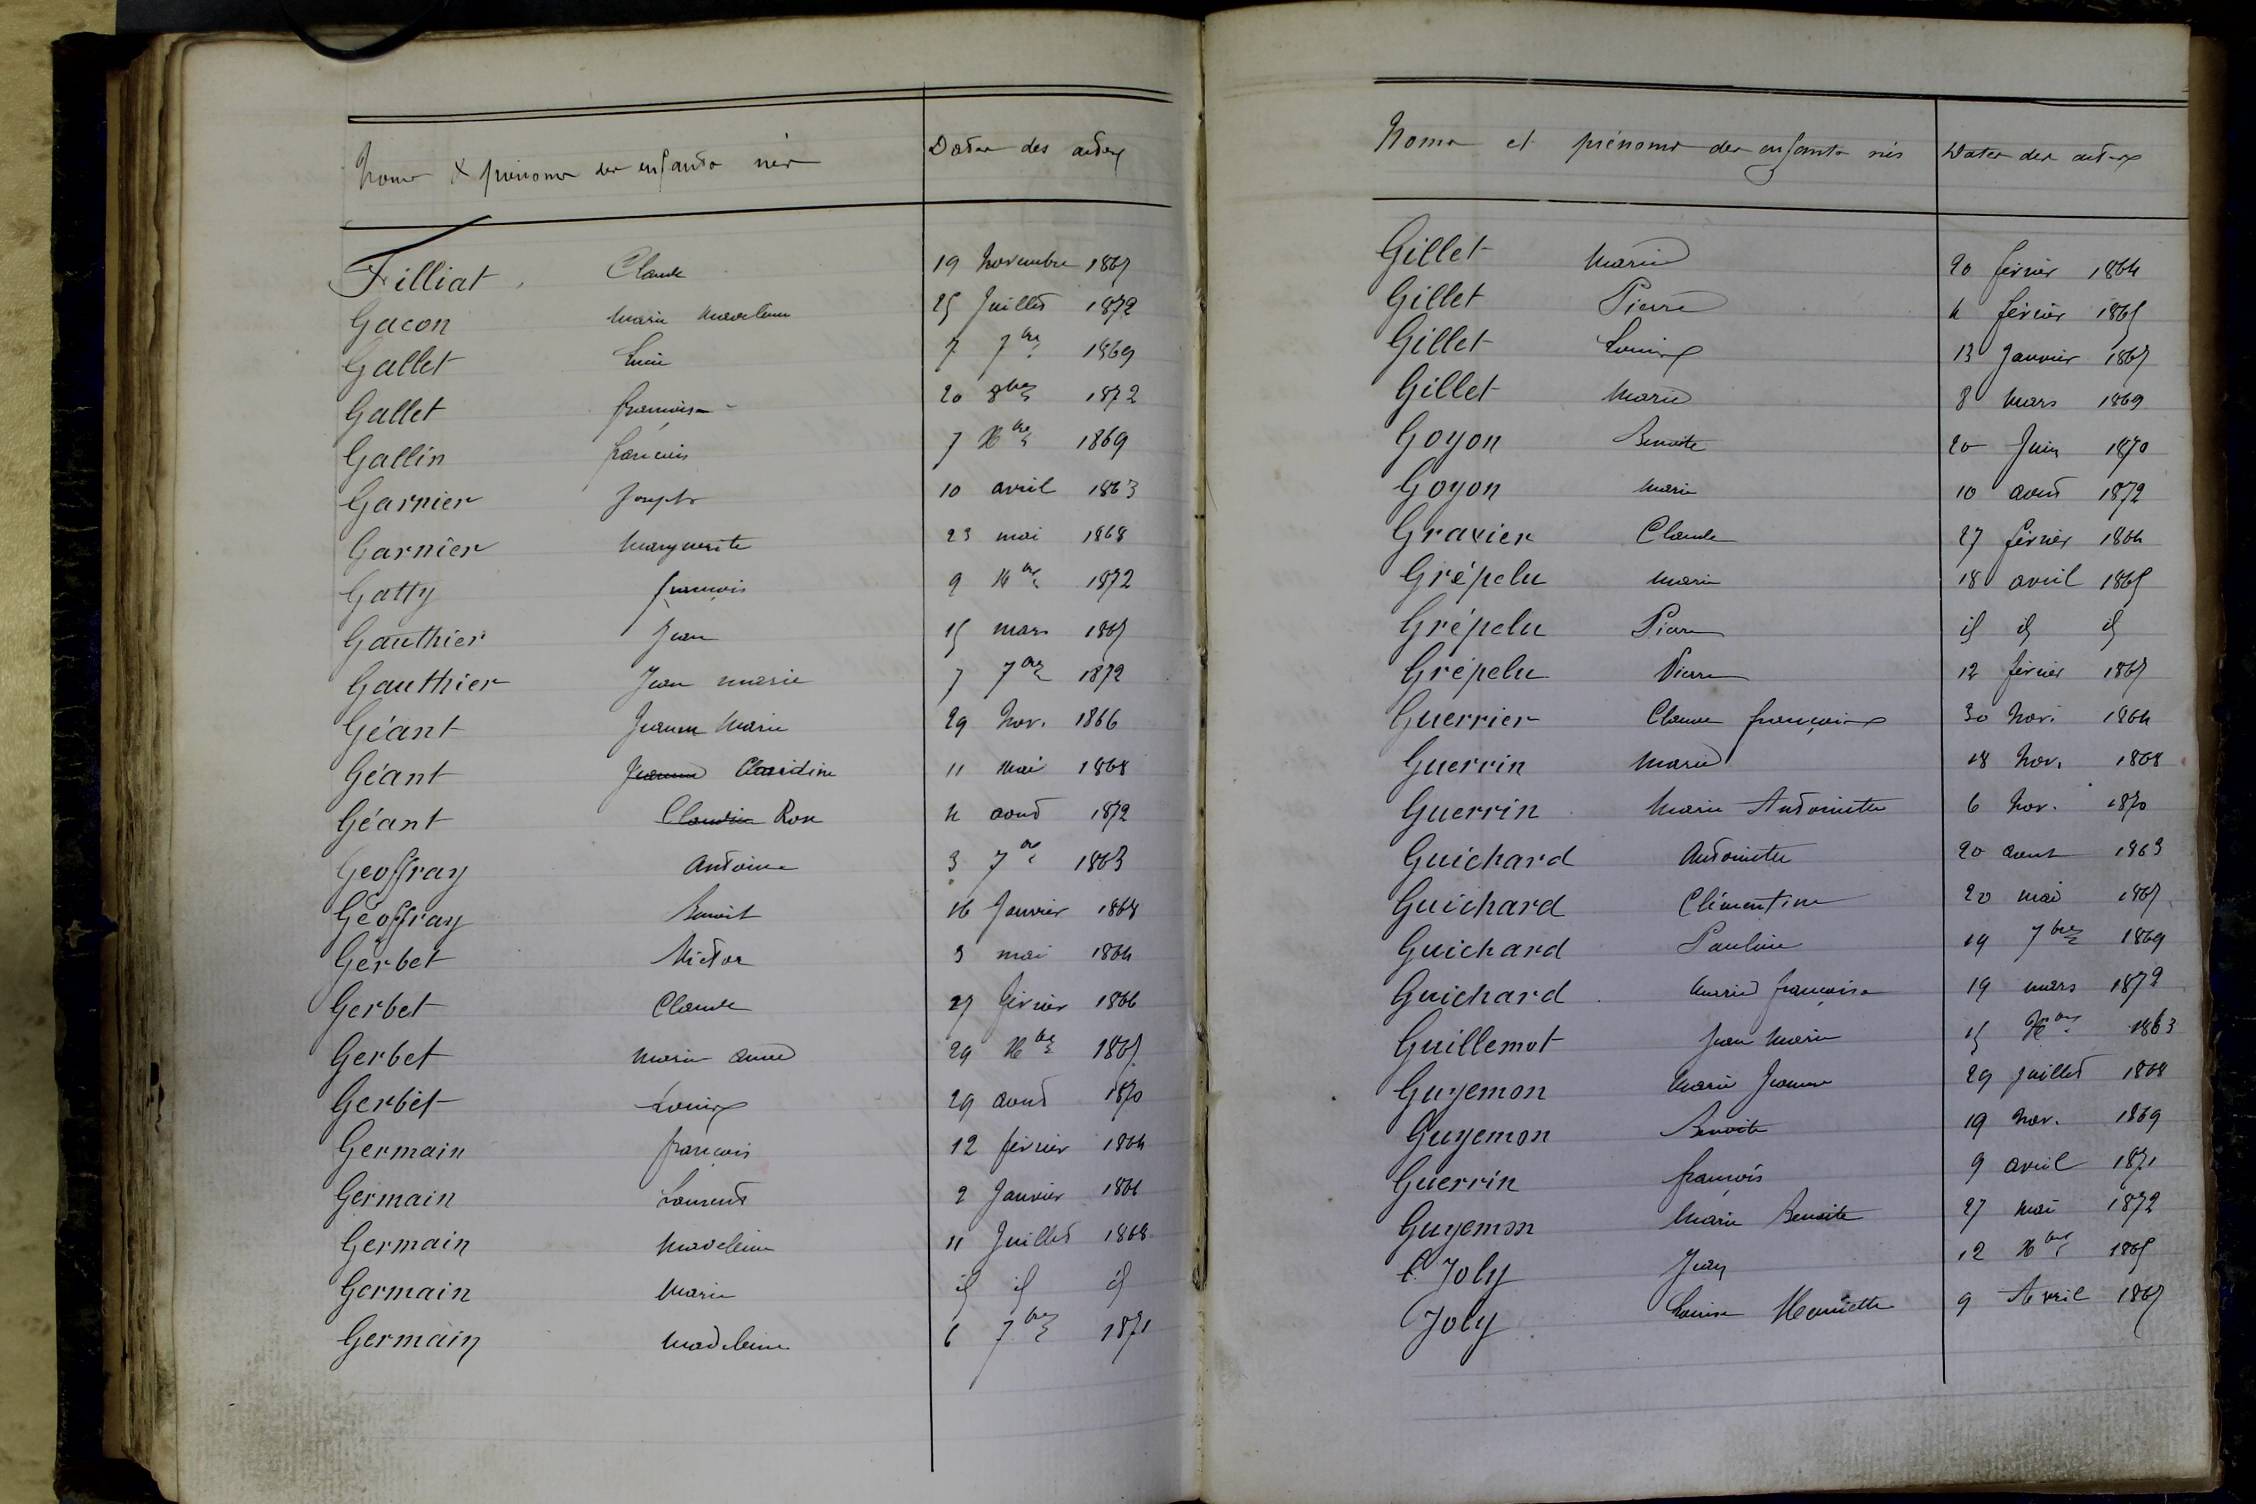 Noms & prénoms des enfants nés Dates des actes
Filliat Claude 19 Novembre 1867
Gacon Marie Madeleine 25 Juillet 1872
Gallet Lucie 7 7bre 1869
Gallet françoise 20 8bre 1872
Gallin francois 7 Xbre 1869
Garnier Joseph 10 avril 1863
Garnier Marguerite 23 mai 1868
Gatty françois 9 Xbre 1872
Gauthier Jean 15 mars 1867
Gauthier Jean marie 7 7bre 1872
Géant Jeanne Marie 29 Nov. 1866
Géant Jeanne Claudine 11 Mai 1868
Géant Claudine Rose 4 aout 1872
Geoffray Antoine 3 7bre 1863
Géoffray Benoit 16 Janvier 1868
Gerbet Victor 3 mai 1864
Gerbet Claude 27 février 1866
Gerbet Marie anne 29 Xbre 1867
Gerbet Louise 29 aout 1870
Germain françois 12 février 1864
Germain Laurent 2 Janvier 1866
Germain Madeleine 11 Juillet 1868
Germain Marie id id id
Germain Madeleine 6 7bre 1871
Noms et prénoms des enfants nés Dates des actes
Gillet Marie 20 février 1864
Gillet Pierre 4 février 1865
Gillet Louise 13 Janvier 1867
Gillet Marie 8 Mars 1869
Goyon Benoite 20 Juin 1870
Goyon Marie 10 aout 1872
Gravier Claude 27 février 1864
Grépelu Marie 18 avril 1865
Grépelu Pierre id id id
Grépelu Pierre 12 février 1867
Guerrier Claude françoise 30 Nov. 1864
Guerrin Marie 18 Nov. 1868
Guerrin Marie Antoinette 6 Nov. 1870
Guichard Antoinette 20 aout 1863
Guichard Clémentine 20 mai 1867
Guichard Pauline 19 7bre 1869
Guichard Marie françoise 19 mars 1872
Guillemot Jean Marie 15 Xbre 1863
Guyemon Marie Jeanne 29 juillet 1868
Guyemon Benoite 19 Nov. 1869
Guerrin françois 9 avril 1871
Guyemon Marie Benoite 27 Mai 1872
Joly Jean 12 Xbre 1865
Joly Louise Henriette 9 Avril 1867